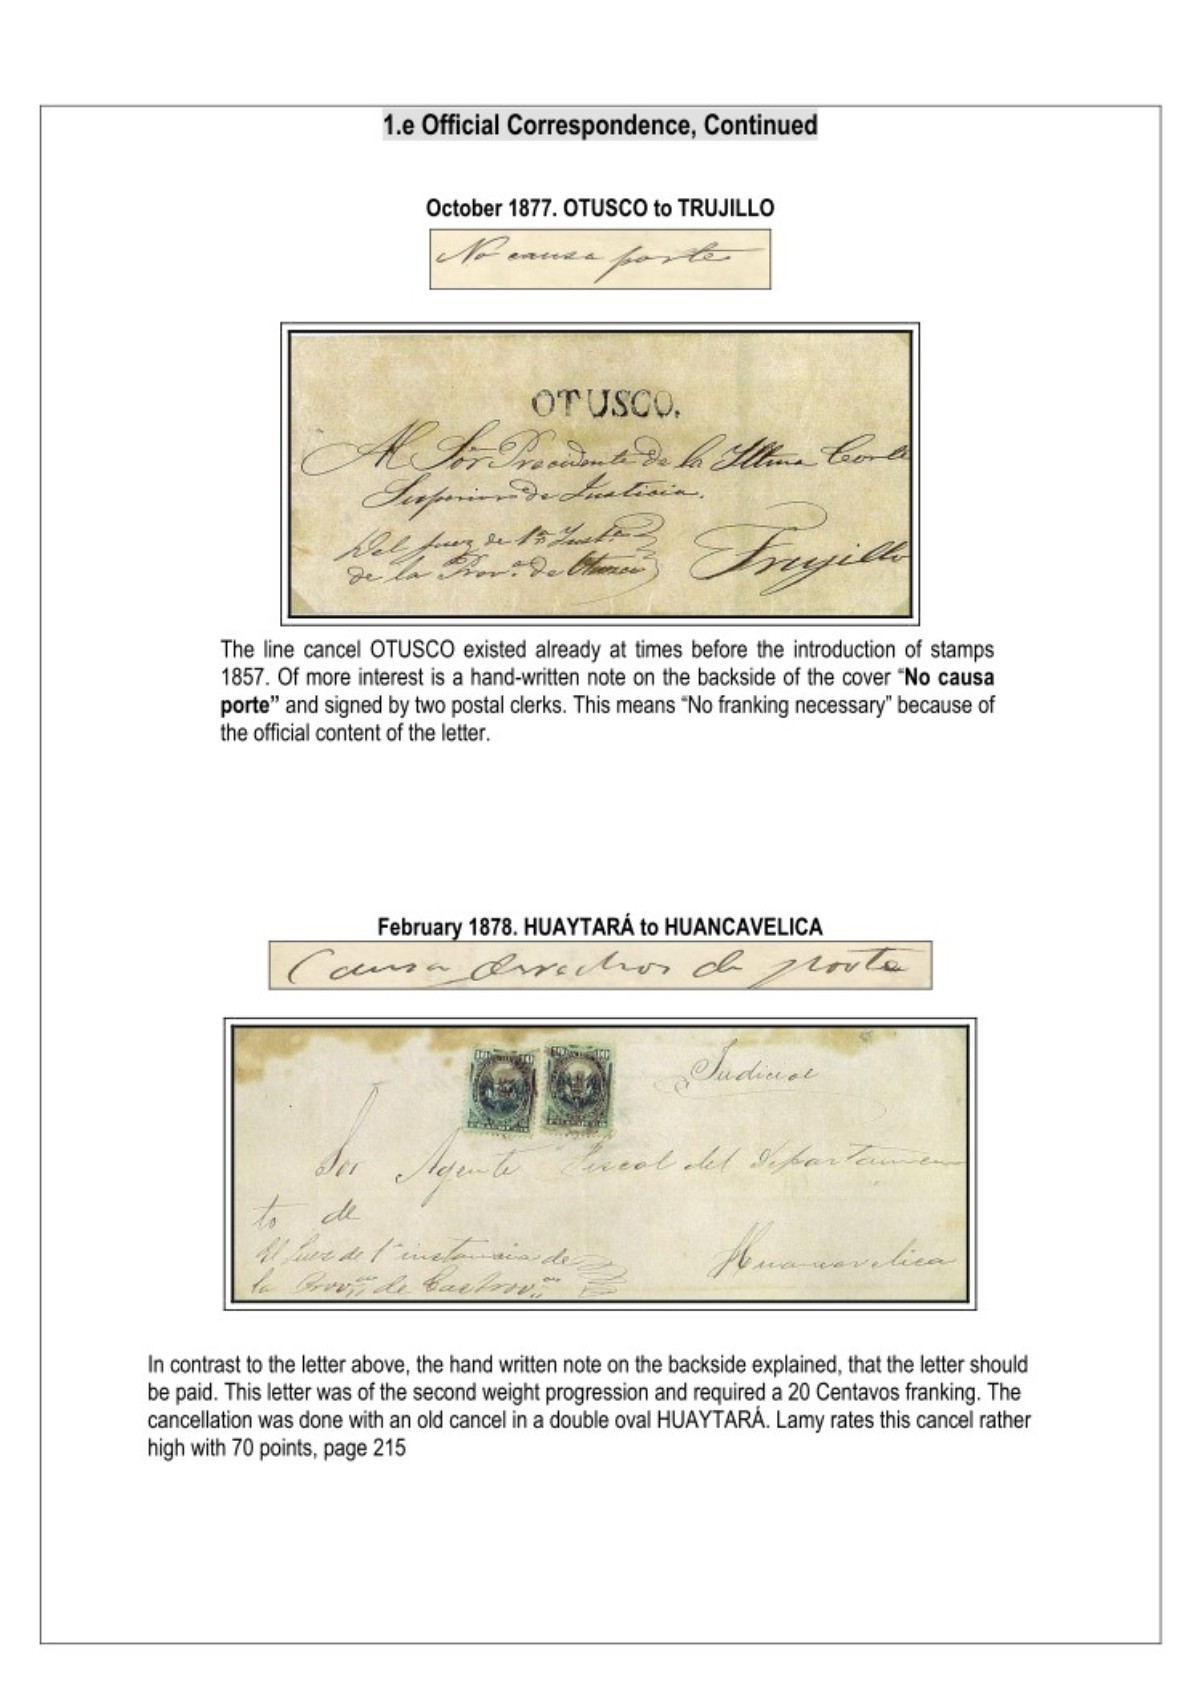 1.e Official Correspondence, Continued
October 1877. OTUSCO to TRUJILLO
No causa porte
OTUSCO.
Al Sor Precidente de la Iltma Corte
Superior de Justicia.
Del juez de 1a Insta
de la Prova de Otusco
Trujillo
The line cancel OTUSCO existed already at times before the introduction of stamps
1857. Of more interest is a hand-written note on the backside of the cover “No causa
porte” and signed by two postal clerks. This means “No franking necessary” because of
the official content of the letter.
February 1878. HUAYTARÁ to HUANCAVELICA
Causa derechos de porte
10 10 10 10
Judicial
Sor Agente Fiscal del Departamen
to de
El Juez de 1a instancia de
la Provcia de Castrovna
Huancavelica
In contrast to the letter above, the hand written note on the backside explained, that the letter should
be paid. This letter was of the second weight progression and required a 20 Centavos franking. The
cancellation was done with an old cancel in a double oval HUAYTARÁ. Lamy rates this cancel rather
high with 70 points, page 215